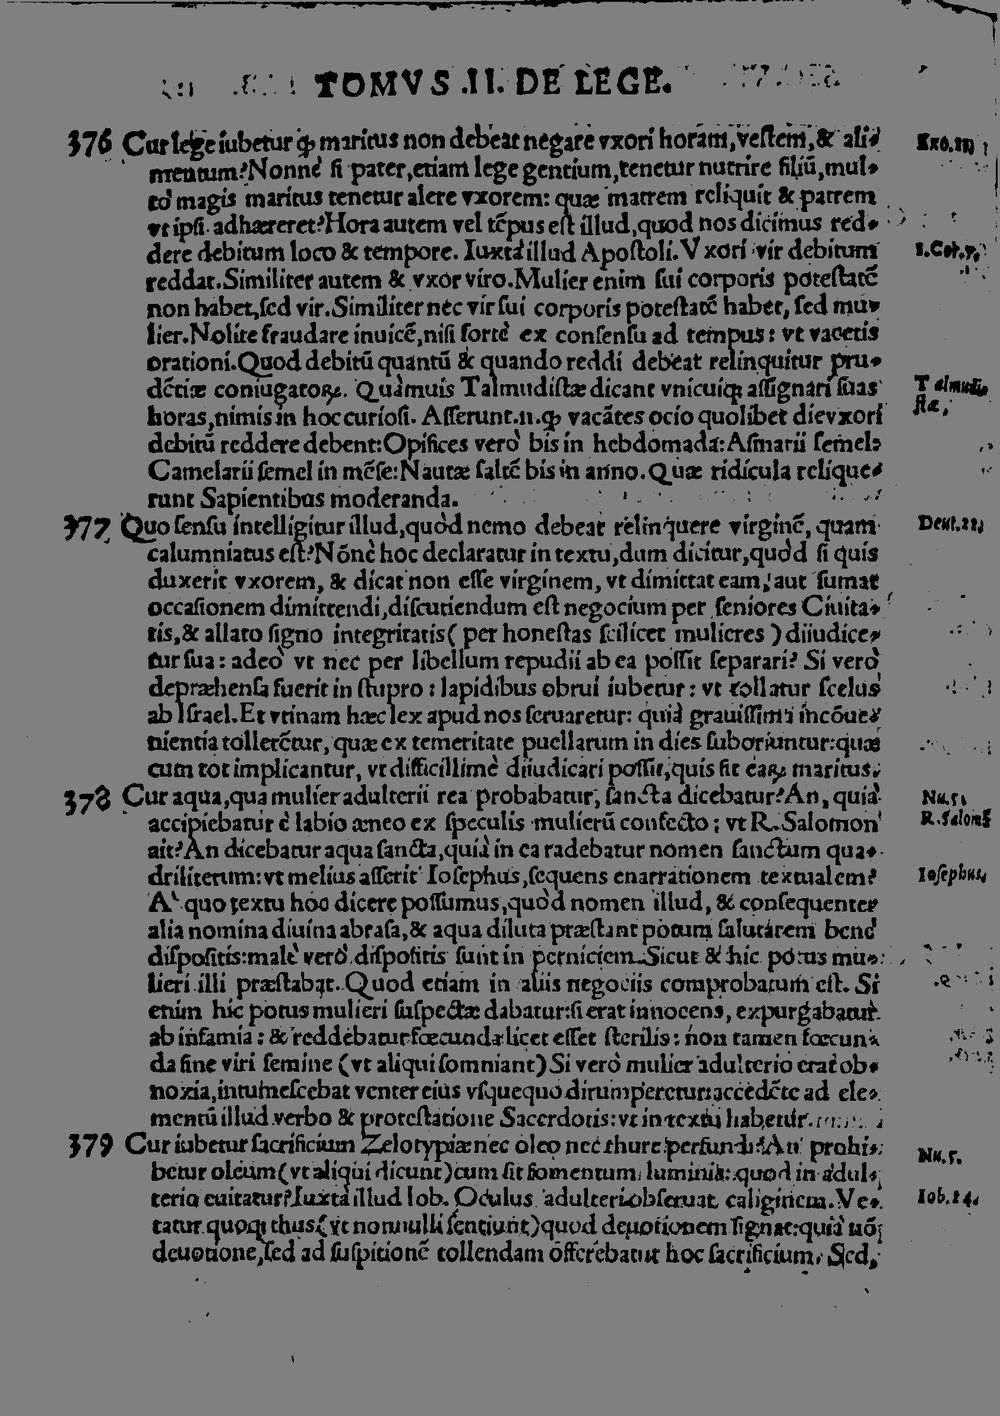 TOMVS .II. DE LEGE.
376 Cur lege iubetur ꝙ maritus non debeat negare vxori horam, vestem, & ali- Exo.21
mentum? Nonne si pater, etiam lege gentium, tenetur nutrire filiũ, mul-
to magis maritus tenetur alere vxorem: quæ matrem reliquit & patrem
vt ipsi adhæreret? Hora autem vel tẽpus est illud, quod nos dicimus red-
dere debitum loco & tempore. Iuxta illud Apostoli. Vxori vir debitum 1.Cor.7.
reddat. Similiter autem & vxor viro. Mulier enim sui corporis potestatẽ
non habet, sed vir. Similiter nec vir sui corporis potestatẽ habet, sed mu-
lier. Nolite fraudare inuicẽ, nisi forte ex consensu ad tempus: vt vacetis
orationi. Quod debitũ quantũ & quando reddi debeat relinquitur pru-
dẽtiæ coniugatoꝝ. Quàmuis Talmudistæ dicant vnicuiqꝫ assignari suas Talmudi-
horas, nimis in hoc curiosi. Asserunt .n. ꝙ vacãtes ocio quolibet die vxori stæ,
debitũ reddere debent: Opifices verò bis in hebdomada: Asinarii semel:
Camelarii semel in mẽse: Nautæ saltẽ bis in anno. Quæ ridicula relique-
runt Sapientibus moderanda.
377 Quo sensu intelligitur illud, quòd nemo debeat relinquere virginẽ, quam Deut.22.
calumniatus est? Nõnè hoc declaratur in textu, dum dicitur, quòd si quis
duxerit vxorem, & dicat non esse virginem, vt dimittat eam, aut sumat
occasionem dimittendi, discutiendum est negocium per seniores Ciuita-
tis, & allato signo integritatis ( per honestas scilicet mulieres ) diiudice-
tur sua: adeò vt nec per libellum repudii ab ea possit separari? Si verò
depræhensa fuerit in stupro: lapidibus obrui iubetur: vt tollatur scelus
ab Israel. Et vtinam hæc lex apud nos seruaretur: quià grauissima incõue-
nientia tollerẽtur, quæ ex temeritate puellarum in dies suboriuntur: quæ
cum tot implicantur, vt difficillimè diiudicari possit, quis sit eaꝝ maritus.
378 Cur aqua, qua mulier adulterii rea probabatur, sancta dicebatur? An, quià Nu.5.
accipiebatur è labio æneo ex speculis mulierũ confecto; vt R. Salomon R.Salomõ
ait? An dicebatur aqua sancta, quià in ea radebatur nomen sanctum qua-
driliterum: vt melius asserit Iosephus, sequens enarrationem textualem? Iosephus,
A quo textu hoc dicere possumus, quòd nomen illud, & consequenter
alia nomina diuina abrasa, & aqua diluta præstant potum salutarem benè
dispositis: malè verò dispositis sunt in perniciem. Sicut & hic potus mu-
lieri illi præstabat. Quod etiam in aliis negociis comprobatum est. Si
enim hic potus mulieri suspectæ dabatur: si erat innocens, expurgabatur
ab infamia: & reddebatur fœcunda licet esset sterilis: non tamen fœcun-
da sine viri semine (vt aliqui somniant) Si verò mulier adulterio erat ob-
noxia, intumescebat venter eius vsquequo dirumperetur: accedẽte ad ele-
mentũ illud verbo & protestatione Sacerdotis: vt in textu habetur.
379 Cur iubetur sacrificium Zelotypiæ nec oleo nec thure perfundi? An prohi-
betur oleum (vt aliqui dicunt) cum sit fomentum luminis: quod in adul- Nu.5.
terio euitatur? Iuxta illud Iob. Oculus adulteri obseruat caliginem. Ve- Iob.24.
tatur quoqꝫ thus (vt nonnulli sentiunt) quod deuotionem signat: quià nõ
deuotione, sed ad suspitionẽ tollendam offerebatur hoc sacrificium. Sed,